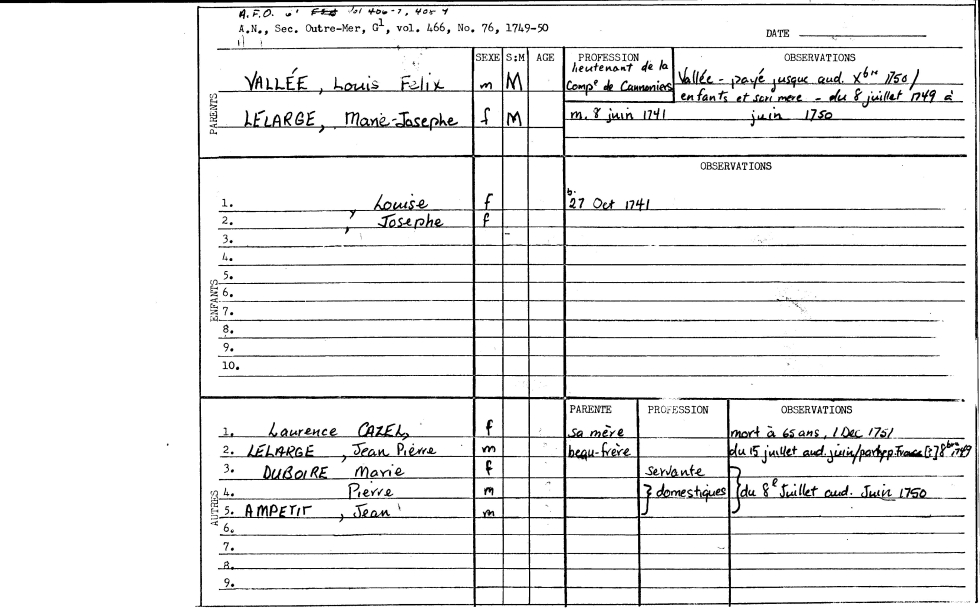 A.F.O. vol 406-7, 408
A.N., Sec. Outre-Mer, G1, vol. 466, No. 76, 1749-50
DATE
SEXE S:M AGE PROFESSION OBSERVATIONS
PARENTS
VALLÉE, Louis Felix m M lieutenant de la Compe de Cannoniers Vallée - payé jusque aud. Xbre 1750/
enfants et sa mere - du 8 juillet 1749 à
LELARGE, Marie-Josephe f M m. 8 juin 1741 juin 1750
OBSERVATIONS
ENFANTS
1. , Louise f b. 27 Oct 1741
2. , Josephe f
3.
4.
5.
6.
7.
8.
9.
10.
PARENTE PROFESSION OBSERVATIONS
AUTRES
1. Laurence CAZEL, f sa mère mort à 65 ans, 1 Dec 1751
2. LELARGE, Jean Pierre m beau-frère du 15 juillet aud. juin/par sep. France [:] 8bre 1749
3. DUBOIRE Marie f servante
4. Pierre m } domestiques } du 8e Juillet aud. Juin 1750
5. AMPETIT, Jean m
6.
7.
8.
9.